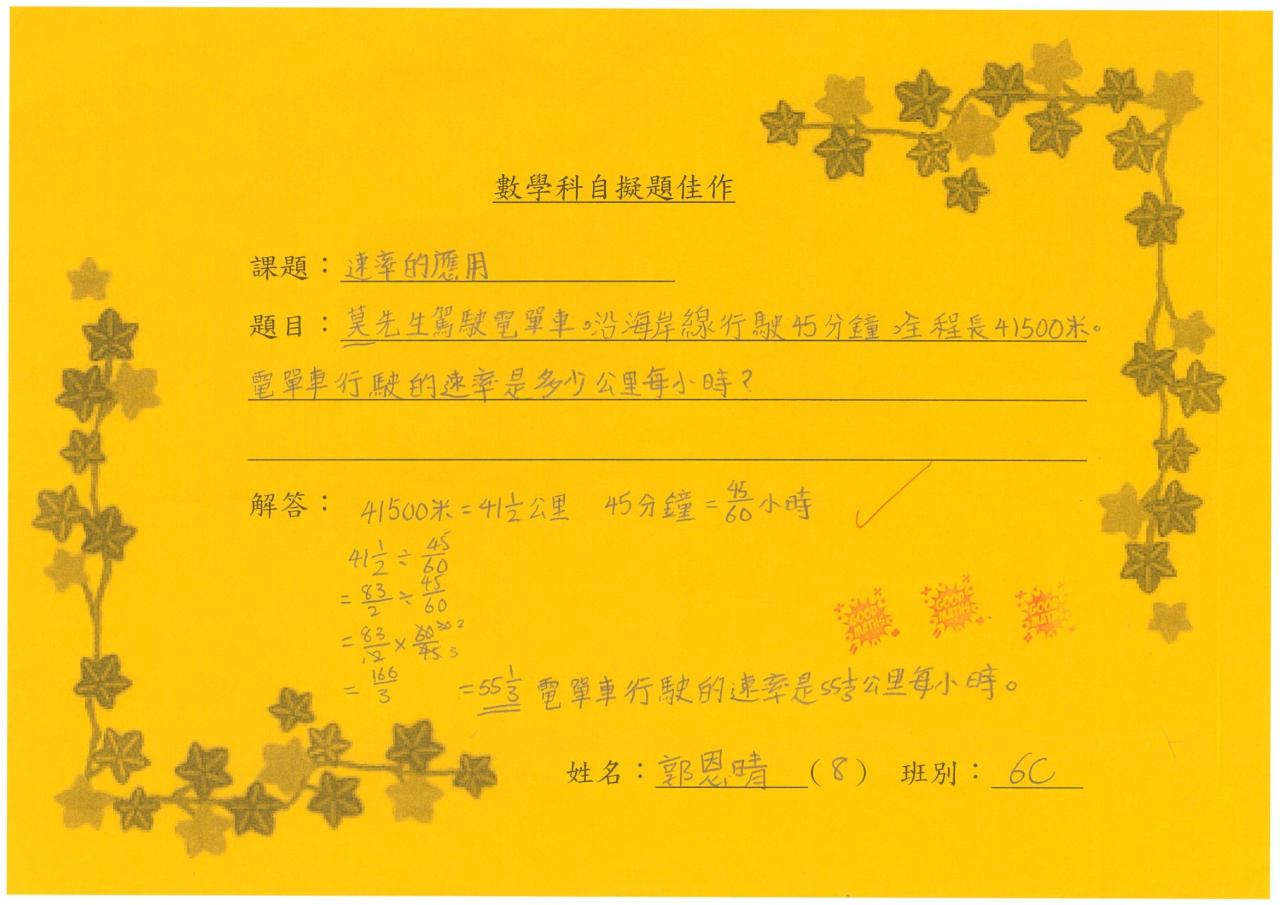 數學科自擬題佳作
課題：速率的應用
題目：莫先生駕駛電單車，沿海岸線行駛45分鐘，全程長41500米。
電單車行駛的速率是多少公里每小時？
解答： 41500米=41 1/2公里 45分鐘=45/60小時
41 1/2 ÷ 45/60
= 83/2 ÷ 45/60
= 83/2 × 60/45 30 2 3
= 166/3 =55 1/3 電單車行駛的速率是55 1/3公里每小時。
GOOD MATHS GOOD MATHS GOOD MATHS
姓名：郭恩晴 (8) 班別：6C